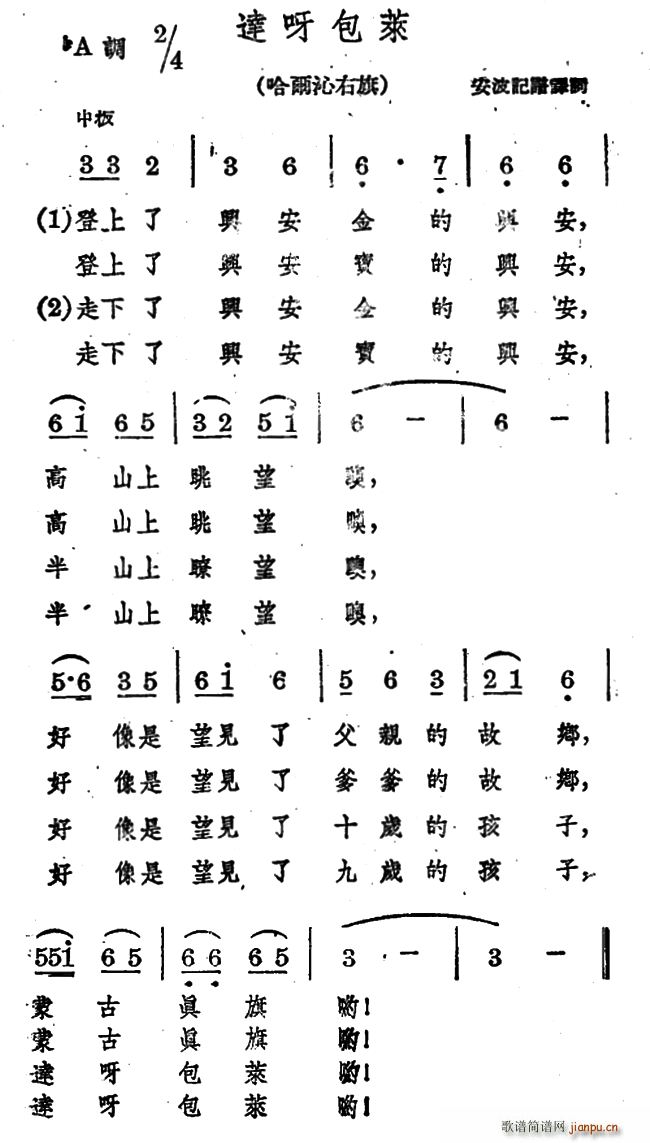 達呀包萊
♭A 調 2/4
(哈爾沁右旗)
安波記譜譯詞
中板
3 3 2 | 3 6 | 6 · 7 | 6 6 |
(1)登上了 興安金的興安,
登上了 興安寶的興安,
(2)走下了 興安金的興安,
走下了 興安寶的興安,
6 i 6 5 | 3 2 5 i | 6 — | 6 — |
高 山上眺望 噢,
高 山上眺望 噢,
半 山上瞭望 噢,
半 山上瞭望 噢,
5·6 3 5 | 6 i 6 | 5 6 3 | 2 1 6 |
好 像是望見了 父親的故鄉,
好 像是望見了 爹爹的故鄉,
好 像是望見了 十歲的孩子,
好 像是望見了 九歲的孩子,
55i 6 5 | 6 6 6 5 | 3 — | 3 — ‖
蒙古眞旗喲!
蒙古眞旗喲!
達呀包萊喲!
達呀包萊喲!
歌谱简谱网 jianpu.cn